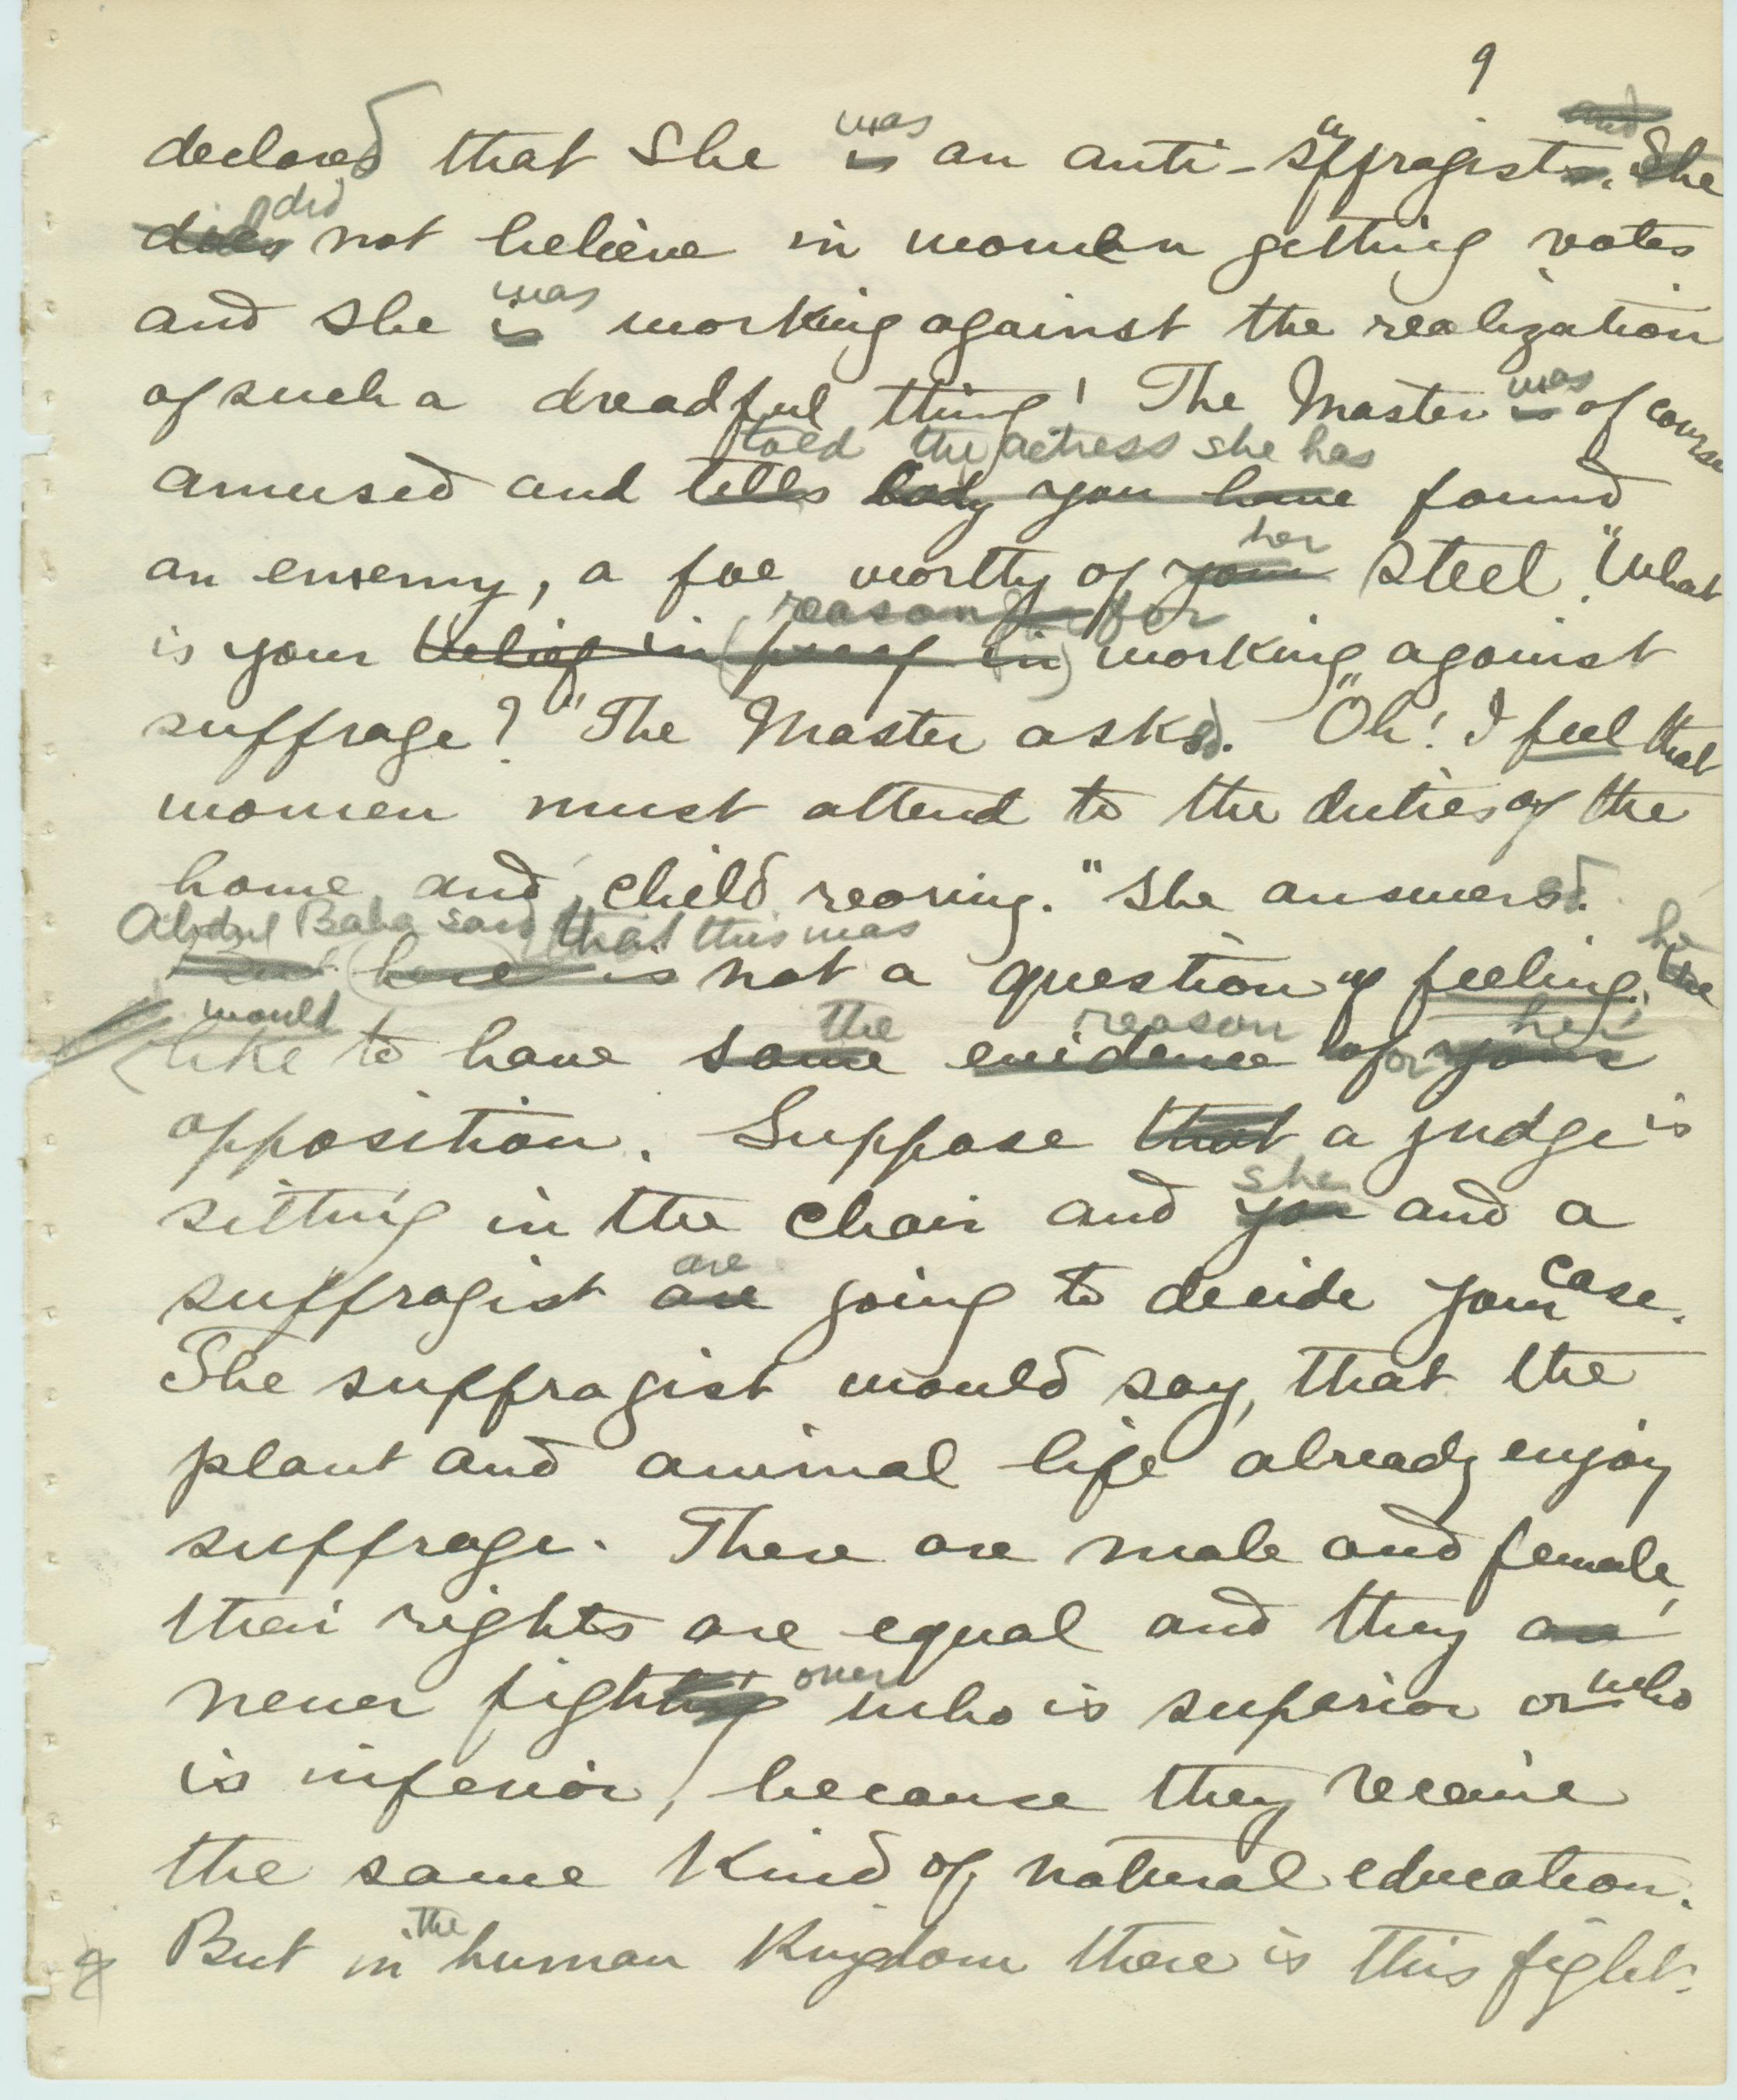 9
and
was
declared that She is an anti-suffragists. She
did
does not believe in women getting votes
was
and she is working against the realization
was
of such a dreadful thing! The Master is of course
told the actress she has
amused and tells lady you have found
her
an enemy, a foe worthy of your steel. "What
reason for
is your belief in (proof in) working against
suffrage?" The Master asked. "Oh! I feel that
women must attend to the duties of the
home and child rearing." She answered.
Abdul Baha said that this was he
But here is not a question of feeling. We
would the reason her
like to have some evidence of or your
opposition. Suppose that a judge is
she
sitting in the chair and you and a
are case.
suffragist are going to decide your
The suffragist would say, that the
plant and animal life already enjoy
suffrage. There are male and female,
their rights are equal and they are
over who
never fighting who is superior or
is inferior, because they receive
the same kind of natural education.
the
But in human Kingdom there is this fight.